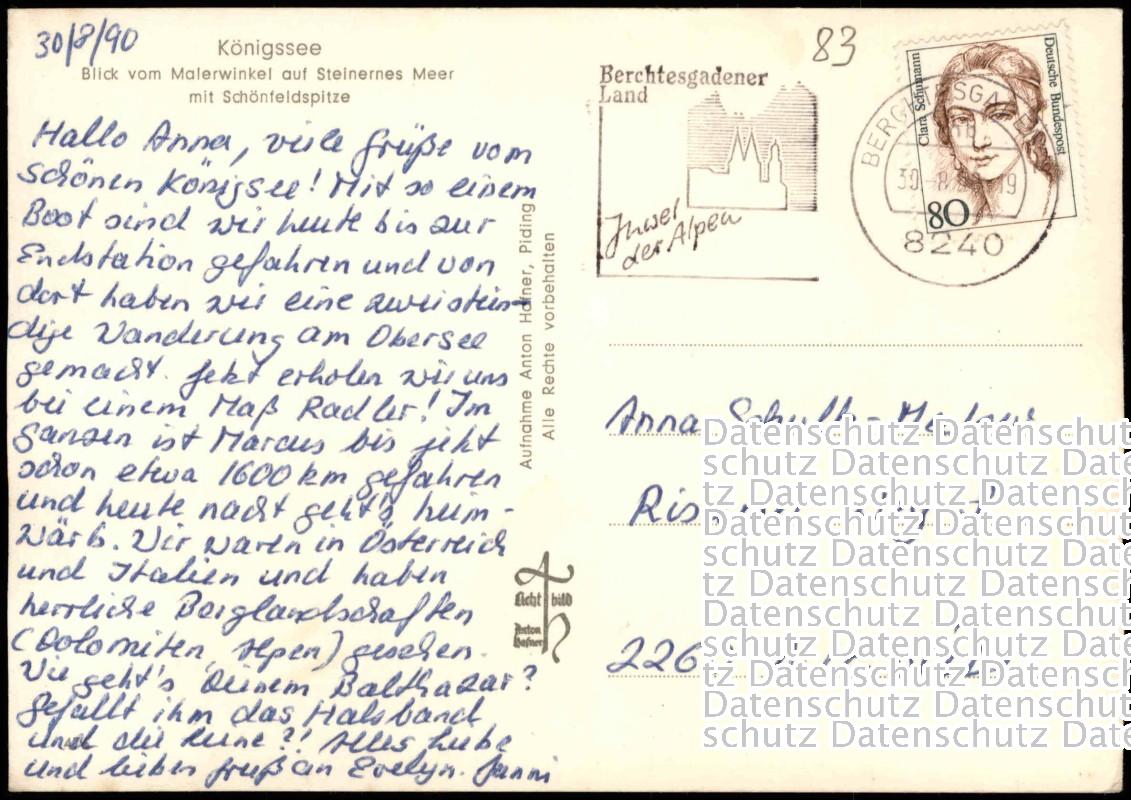 30/8/90
Königssee
Blick vom Malerwinkel auf Steinernes Meer
mit Schönfeldspitze
Hallo Anna, viele Grüße vom
schönen Königsee! Mit so einem
Boot sind wir heute bis zur
Endstation gefahren und von
dort haben wir eine zweistün-
dige Wanderung am Obersee
gemacht. Jetzt erholen wir uns
bei einem Maß Radler! Im
ganzen ist Marcus bis jetzt
schon etwa 1600 km gefahren
und heute nacht geht's heim-
wärts. Wir waren in Österreich
und Italien und haben
herrliche Berglandschaften
(Dolomiten, Alpen) gesehen.
Wie geht's Deinem Balthazar?
Gefällt ihm das Halsband
und die Leine?! Alles Liebe
und lieben Gruß an Evelyn. Janni
Aufnahme Anton Hafner, Piding
Alle Rechte vorbehalten
Licht bild
Anton
Hafner
83
Berchtesgadener
Land
Juwel
der Alpen
BERCHTESGADEN
8240
Clara Schumann
Deutsche Bundespost
80
Anna
226
Datenschutz Datenschutz
schutz Datenschutz Date
tz Datenschutz Datensch
schutz Datenschutz Date
tz Datenschutz Datensch
schutz Datenschutz Date
Datenschutz Datenschutz
schutz Datenschutz Date